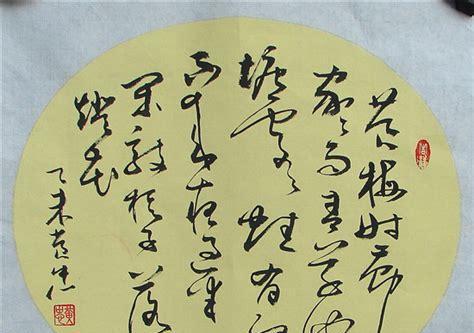 黄梅时节
家家雨青草池
塘处处蛙有约
不来夜过半
闲敲棋子落
灯花
乙未黄